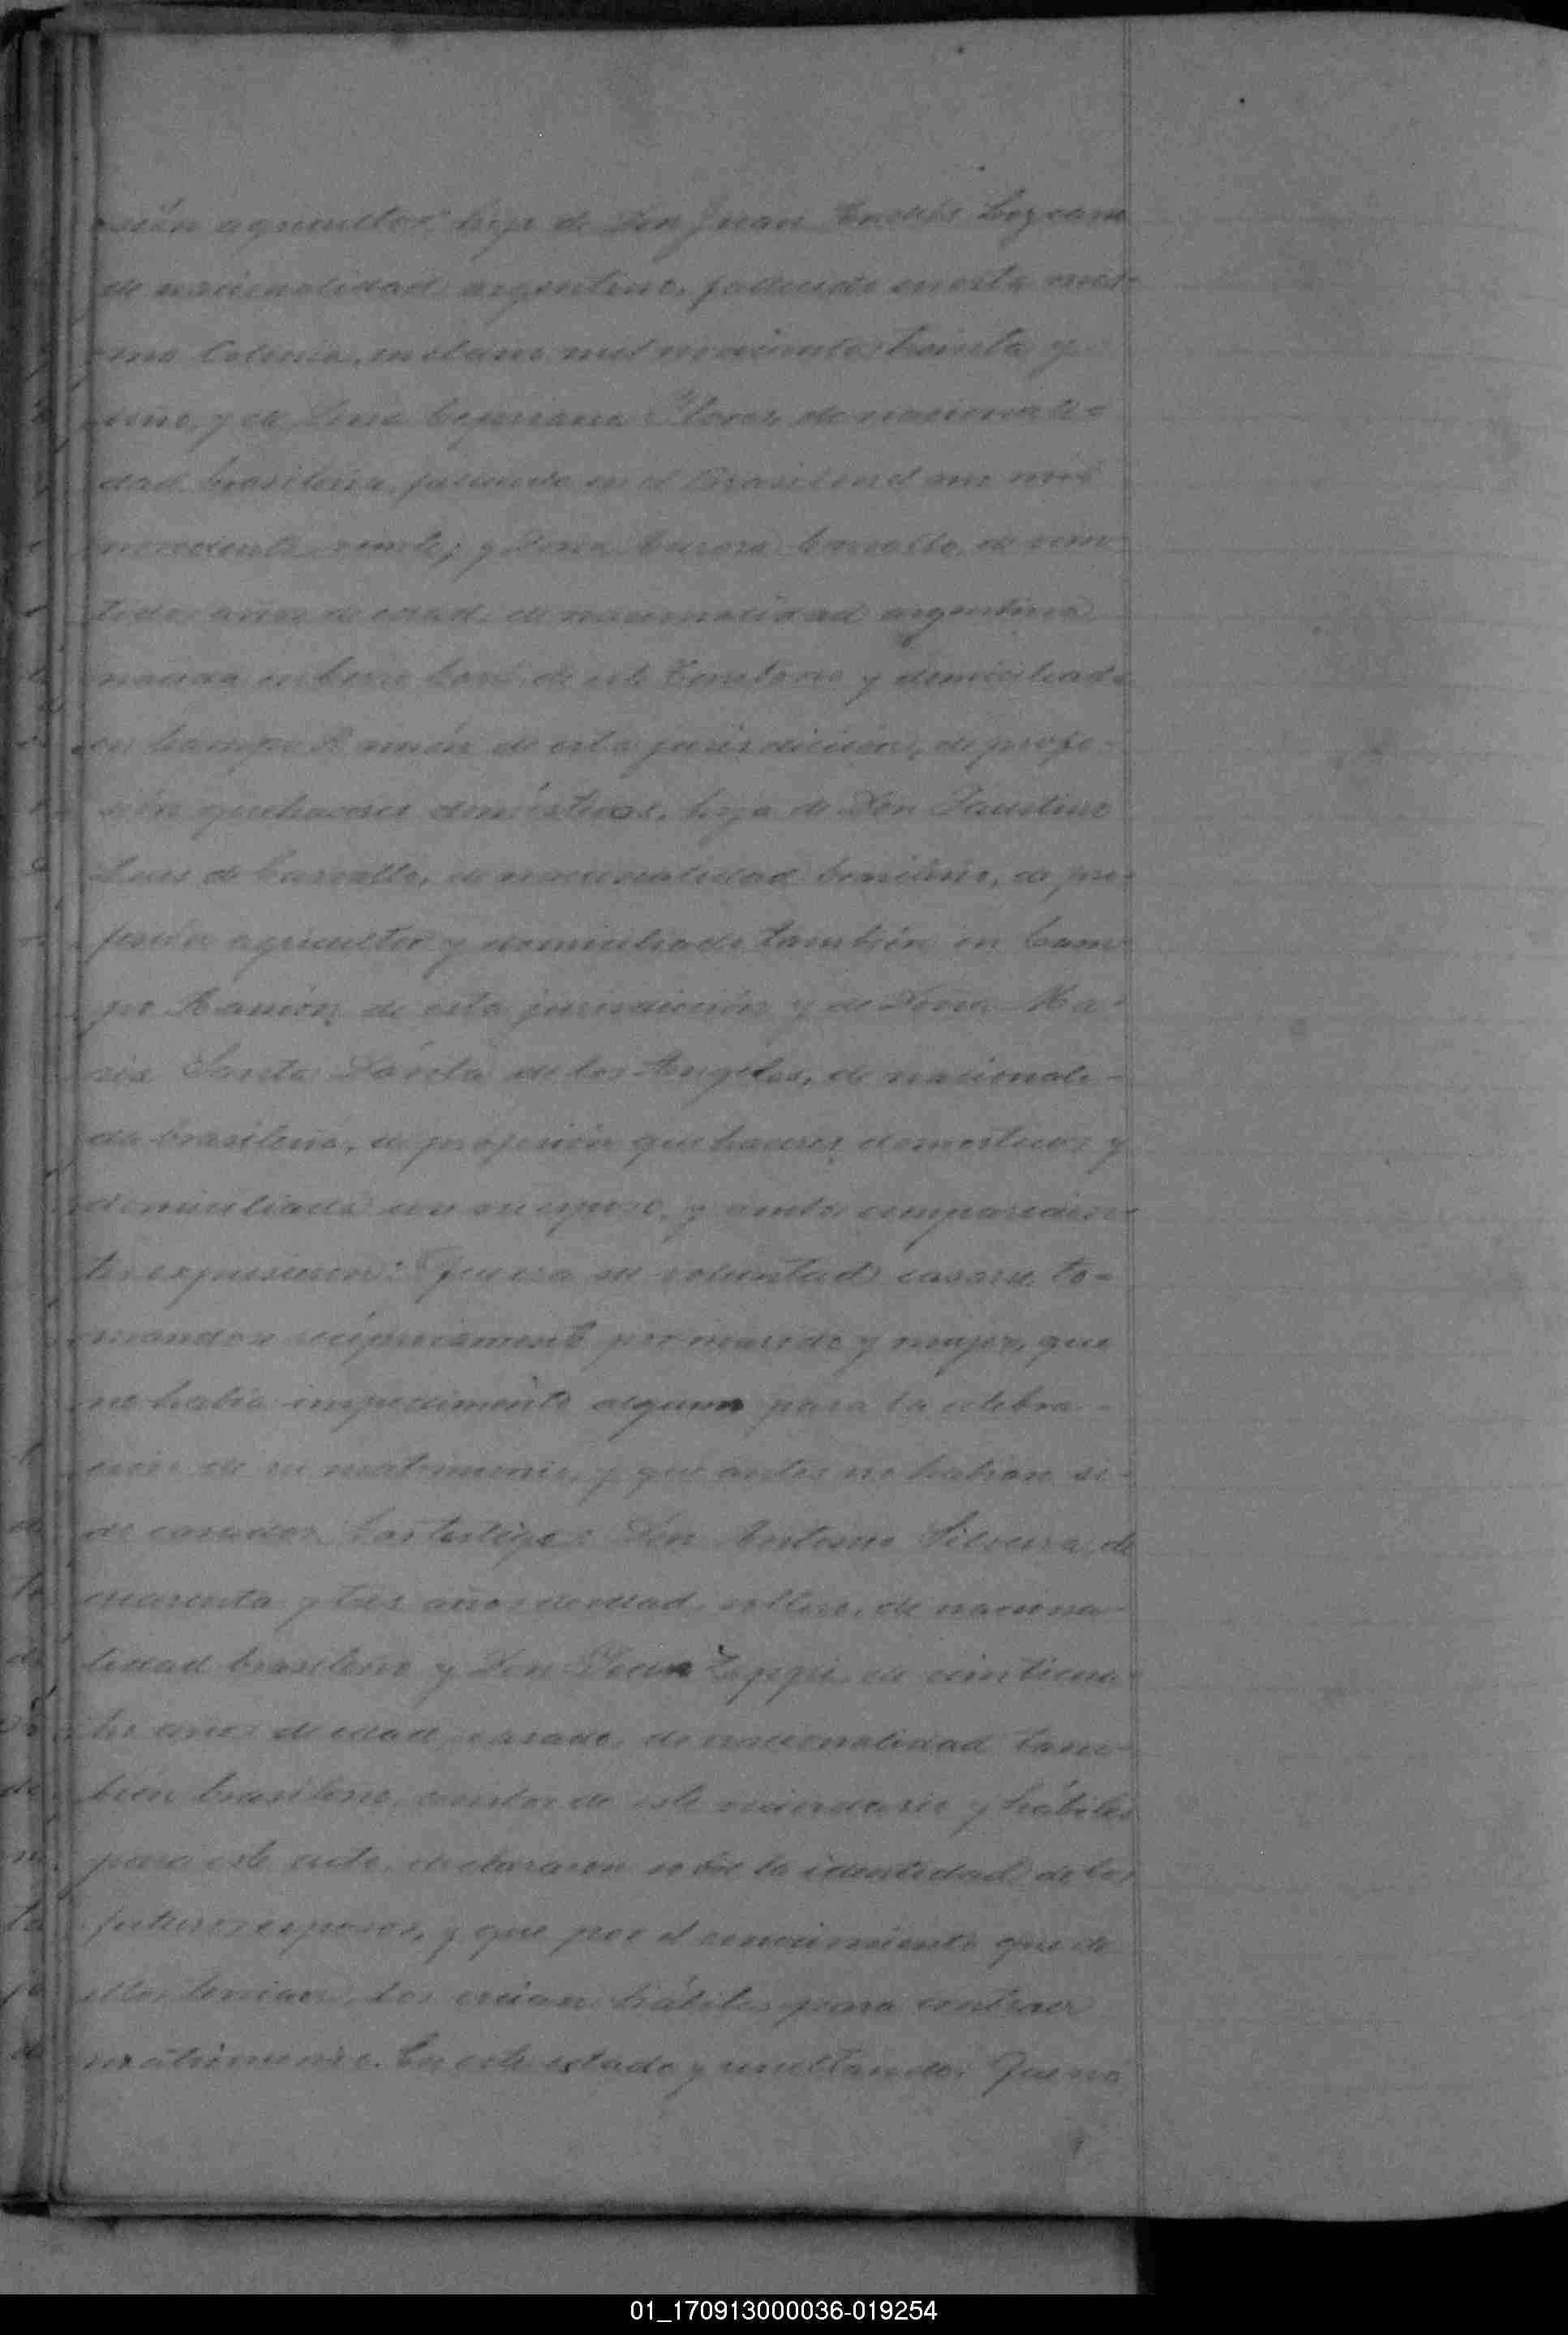 sión agricultor, hijo de Don Juan Lezcano
de nacionalidad argentino, fallecido en esta mis-
ma Colonia, en el año mil novecientos treinta y
uno, y de Doña Cipriana Flores, de nacionali-
dad brasileña, fallecida en el Brasil en el año mil
novecientos veinte; y Doña Carvallo, de vein-
tidos años de edad, de nacionalidad argentina,
nacida en Cerro Corá, de este Territorio y domiciliada
en Campo Ramón de esta jurisdicción, de profe-
sión quehaceres domésticos, hija de Don Faustino
Luis de Carvallo, de nacionalidad brasileño, de pro-
fesión agricultor y domiciliado también en Cam-
po Ramón de esta jurisdicción y de Doña Ma-
ria Santa de los Angeles, de nacionali-
da brasileña, de profesión quehaceres domesticos y
domiciliada con su esposo, y ambos comparecien-
tes expusieron: Que era su voluntad casarse to-
mandose recíprocamente por marido y mujer, que
no había impedimento alguno para la celebra-
ción de su matrimonio, y que antes no habían si-
do casados. Los testigos: Don Antonio Silveira, de
cuarenta y tres años de edad, soltero, de naciona-
lidad brasileño y Don Zeppi, de
años de edad, casado, de nacionalidad tam-
bién brasileno, ambos de este vecindario y hábiles
para este acto, declararon sobre la identidad de los
futuros esposos, y que por el conocimiento que de
ellos tenían, los creían hábiles para contraer
matrimonio. En este estado y resultando: Que no
01_170913000036-019254